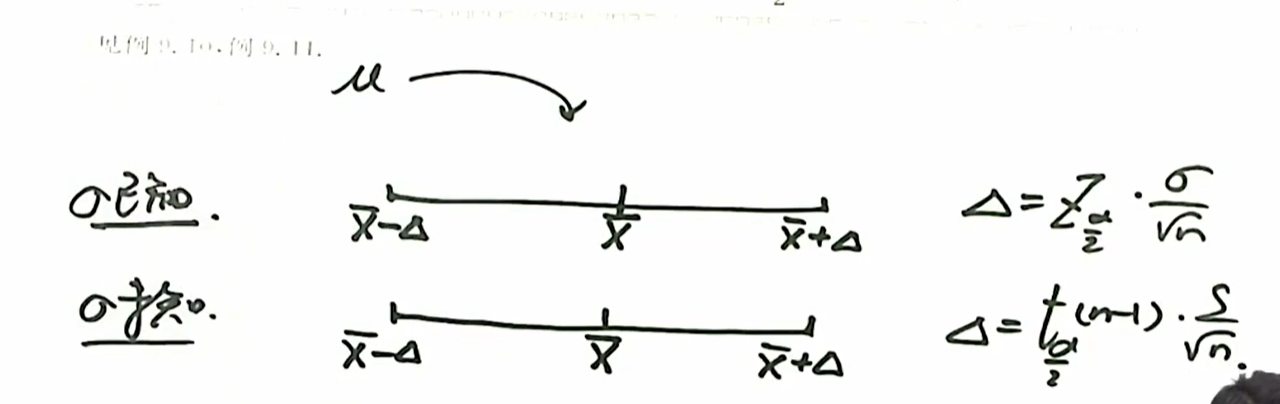 见例9.10、例9.11.
μ
σ已知.
x̄-Δ x̄ x̄+Δ
Δ = Z_{α/2} · σ/√n
σ未知.
x̄-Δ x̄ x̄+Δ
Δ = t_{α/2}(n-1) · S/√n.